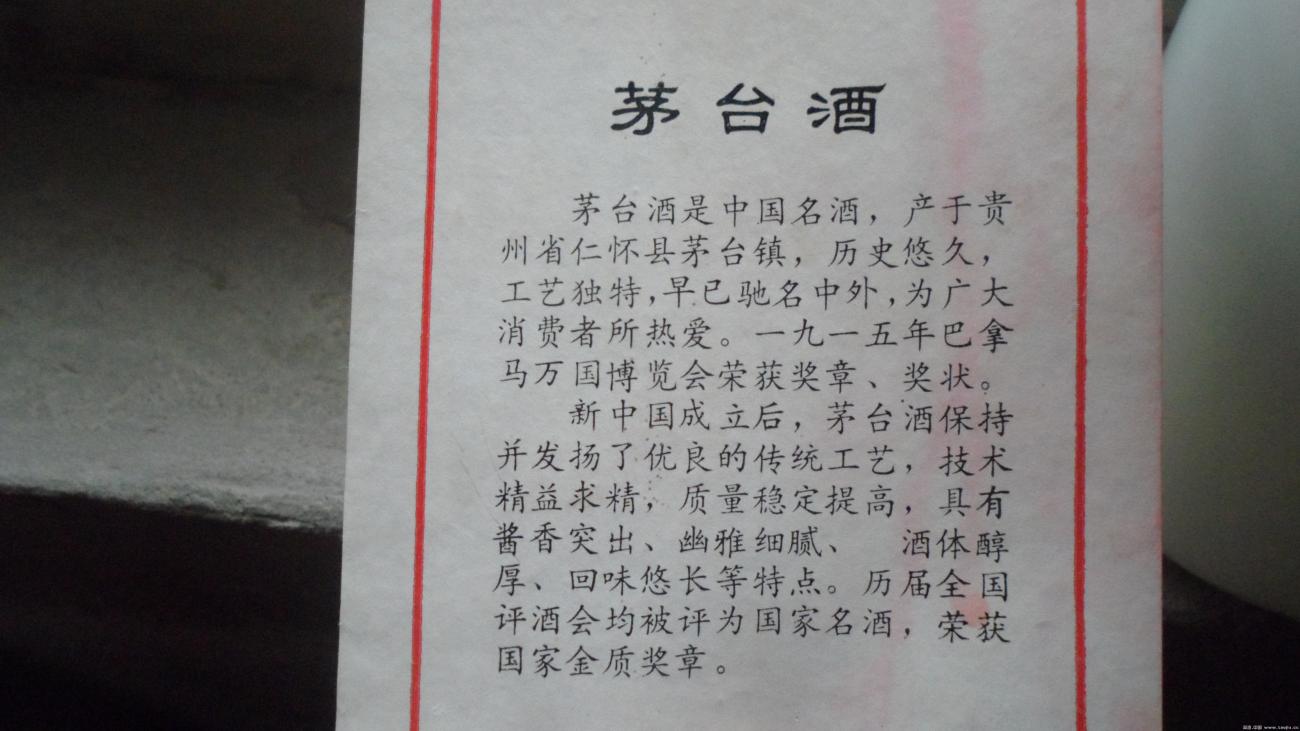 茅台酒
茅台酒是中国名酒，产于贵
州省仁怀县茅台镇，历史悠久，
工艺独特，早已驰名中外，为广大
消费者所热爱。一九一五年巴拿
马万国博览会荣获奖章、奖状。
新中国成立后，茅台酒保持
并发扬了优良的传统工艺，技术
精益求精，质量稳定提高，具有
酱香突出、幽雅细腻、 酒体醇
厚、回味悠长等特点。历届全国
评酒会均被评为国家名酒，荣获
国家金质奖章。